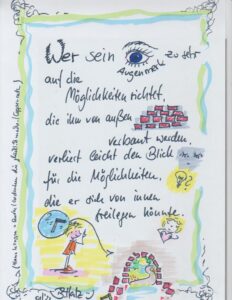 Wer sein Augenmerk zu sehr
auf die
Möglichkeiten richtet,
die ihm von außen
verbaut werden,
verliert leicht den Blick
für die Möglichkeiten,
die er sich von innen
freilegen könnte.